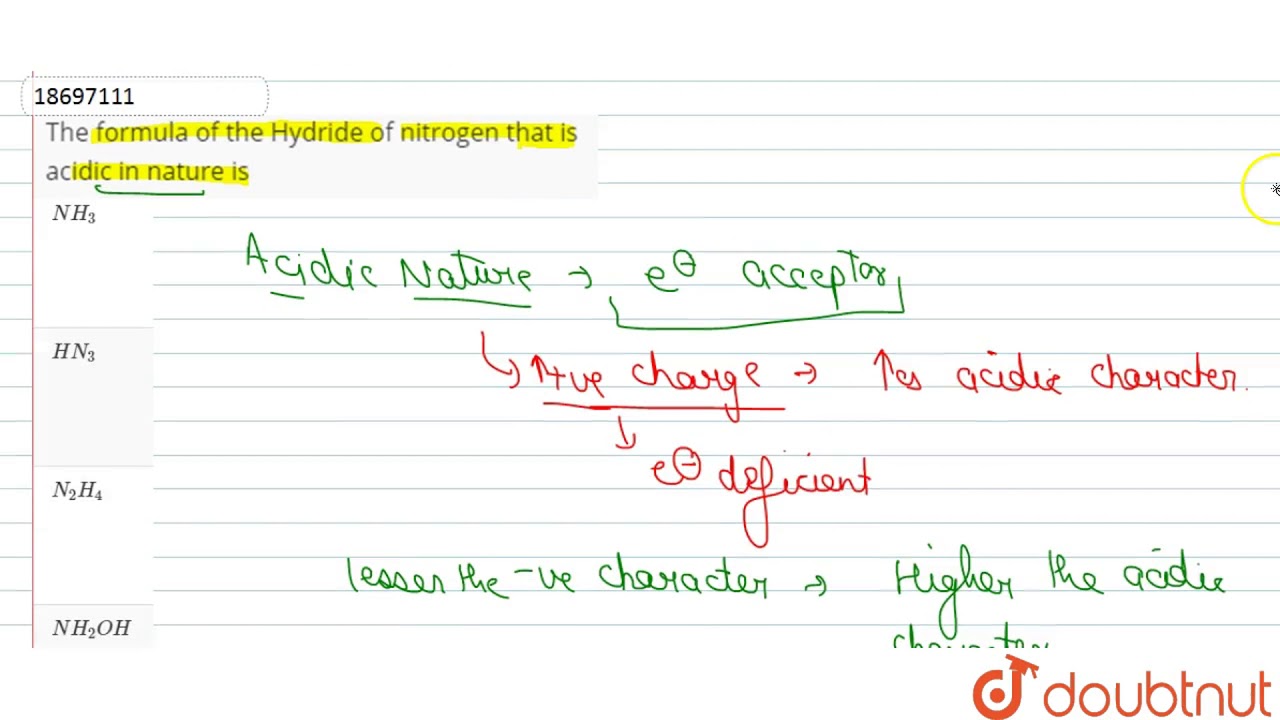 18697111
The formula of the Hydride of nitrogen that is
acidic in nature is
NH₃
Acidic Nature → e⊖ acceptor
HN₃
↳ ↑+ve charge → ↑es acidic character.
↓
e⊖ deficient
N₂H₄
lesser the -ve character → Higher the acidic
character
NH₂OH
doubtnut